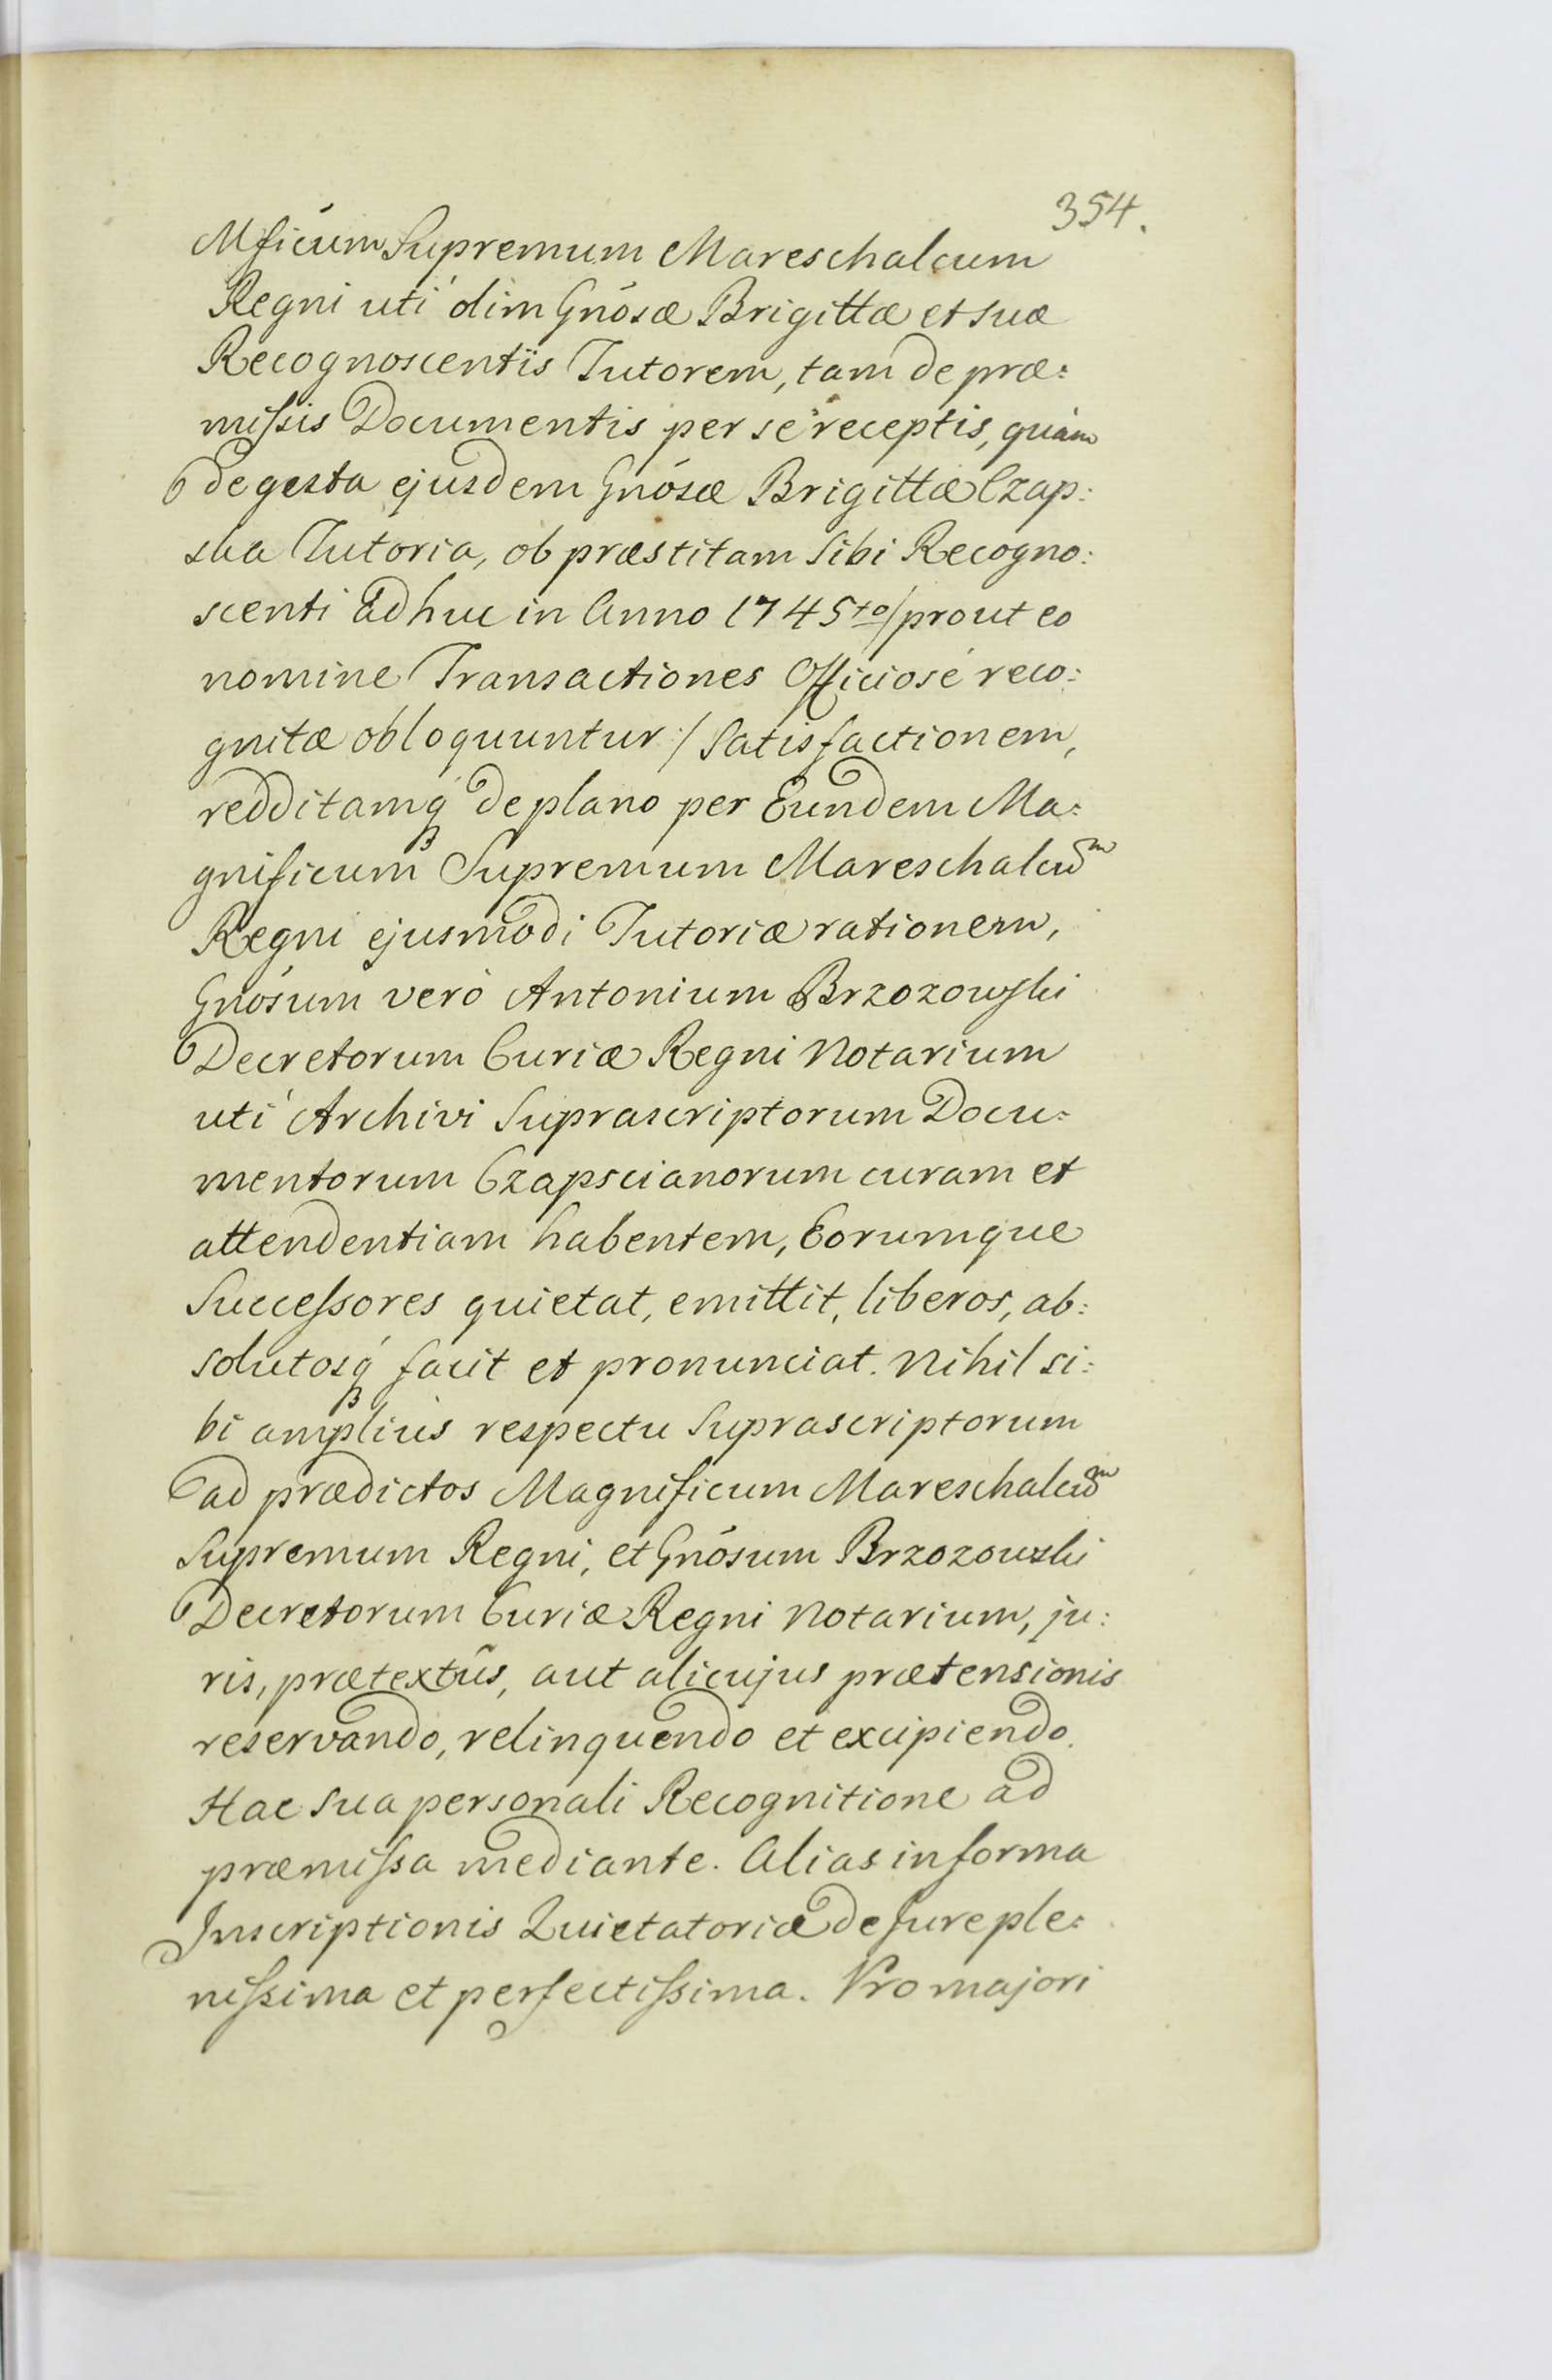 354.
Mficum Supremum Mareschalcum
Regni uti olim Gnosæ Brigittæ et suæ
Recognoscentis Tutorem, tam de præ:
missis Documentis per se receptis, quàm
de gesta ejusdem Gnosæ Brigittæ Czap:
ska Tutoria, ob præstitam sibi Recogno:
scenti adhuc in Anno 1745to /prout eo
nomine Transactiones Officiosé reco:
gnitæ obloquuntur:/ Satisfactionem,
redditamq́ de plano per Eundem Ma:
gnificum Supremum Mareschalcum
Regni ejusmodi Tutoriæ rationem,
Gnosum verò Antonium Brzozowski
Decretorum Curiæ Regni Notarium
uti Archivi Suprascriptorum Docu:
mentorum Czapscianorum curam et
attendentiam habentem, Eorumque
Successores quietat, emittit, liberos, ab:
solutosq́ facit et pronunciat. Nihil si:
bi ampliús respectu Suprascriptorum
ad prædictos Magnificum Mareschalcum
Supremum Regni, et Gnosum Brzozowski
Decretorum Curiæ Regni Notarium, ju:
ris, prætextûs, aut alicujus prætensionis
reservando, relinquendo et excipiendo.
Hac sua personali Recognitione ad
præmissa mediante. Alias in forma
Inscriptionis Quietatoriæ de Jure ple:
nissima et perfectissima. Pro majori